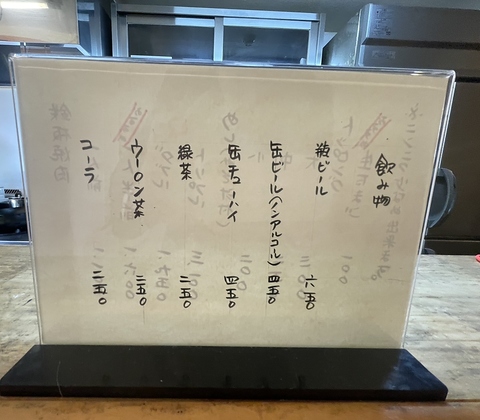 飲み物
瓶ビール 六五〇
缶ビール(ノンアルコル) 四五〇
缶チューハイ 四五〇
緑茶 二五〇
ウーロン茶 二五〇
コーラ 二五〇